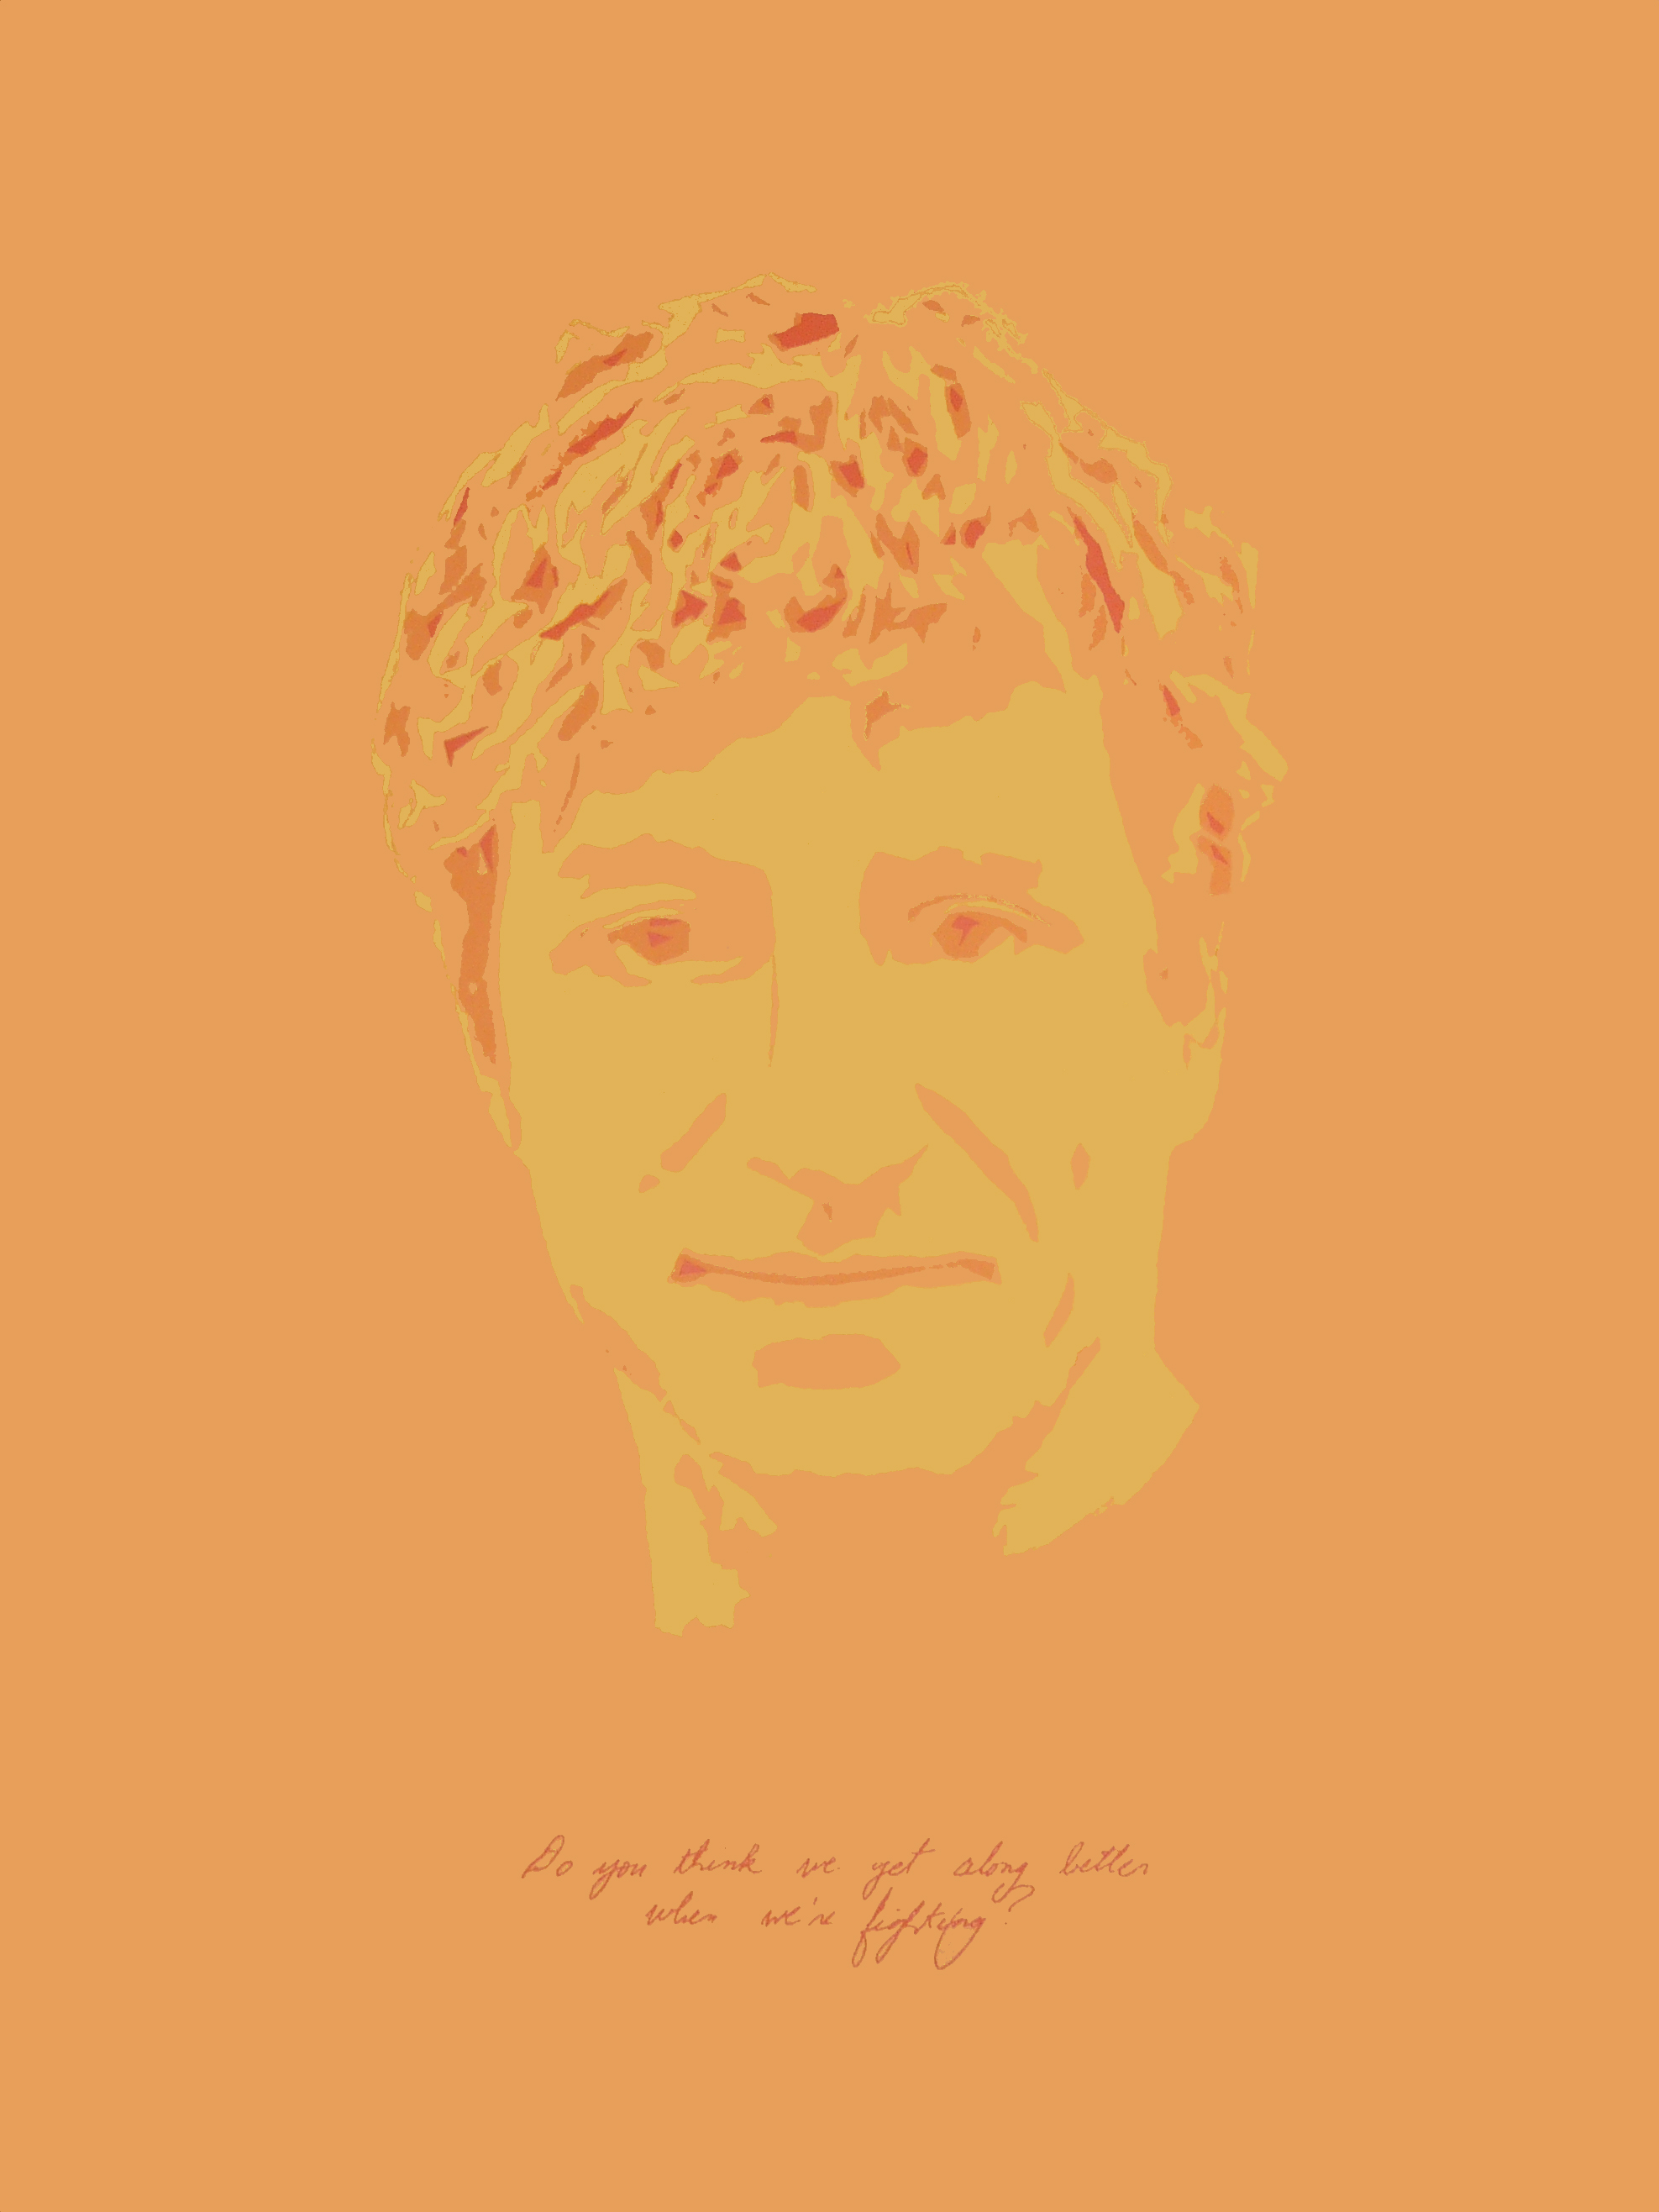 Do you think we get along better
when we're fighting?